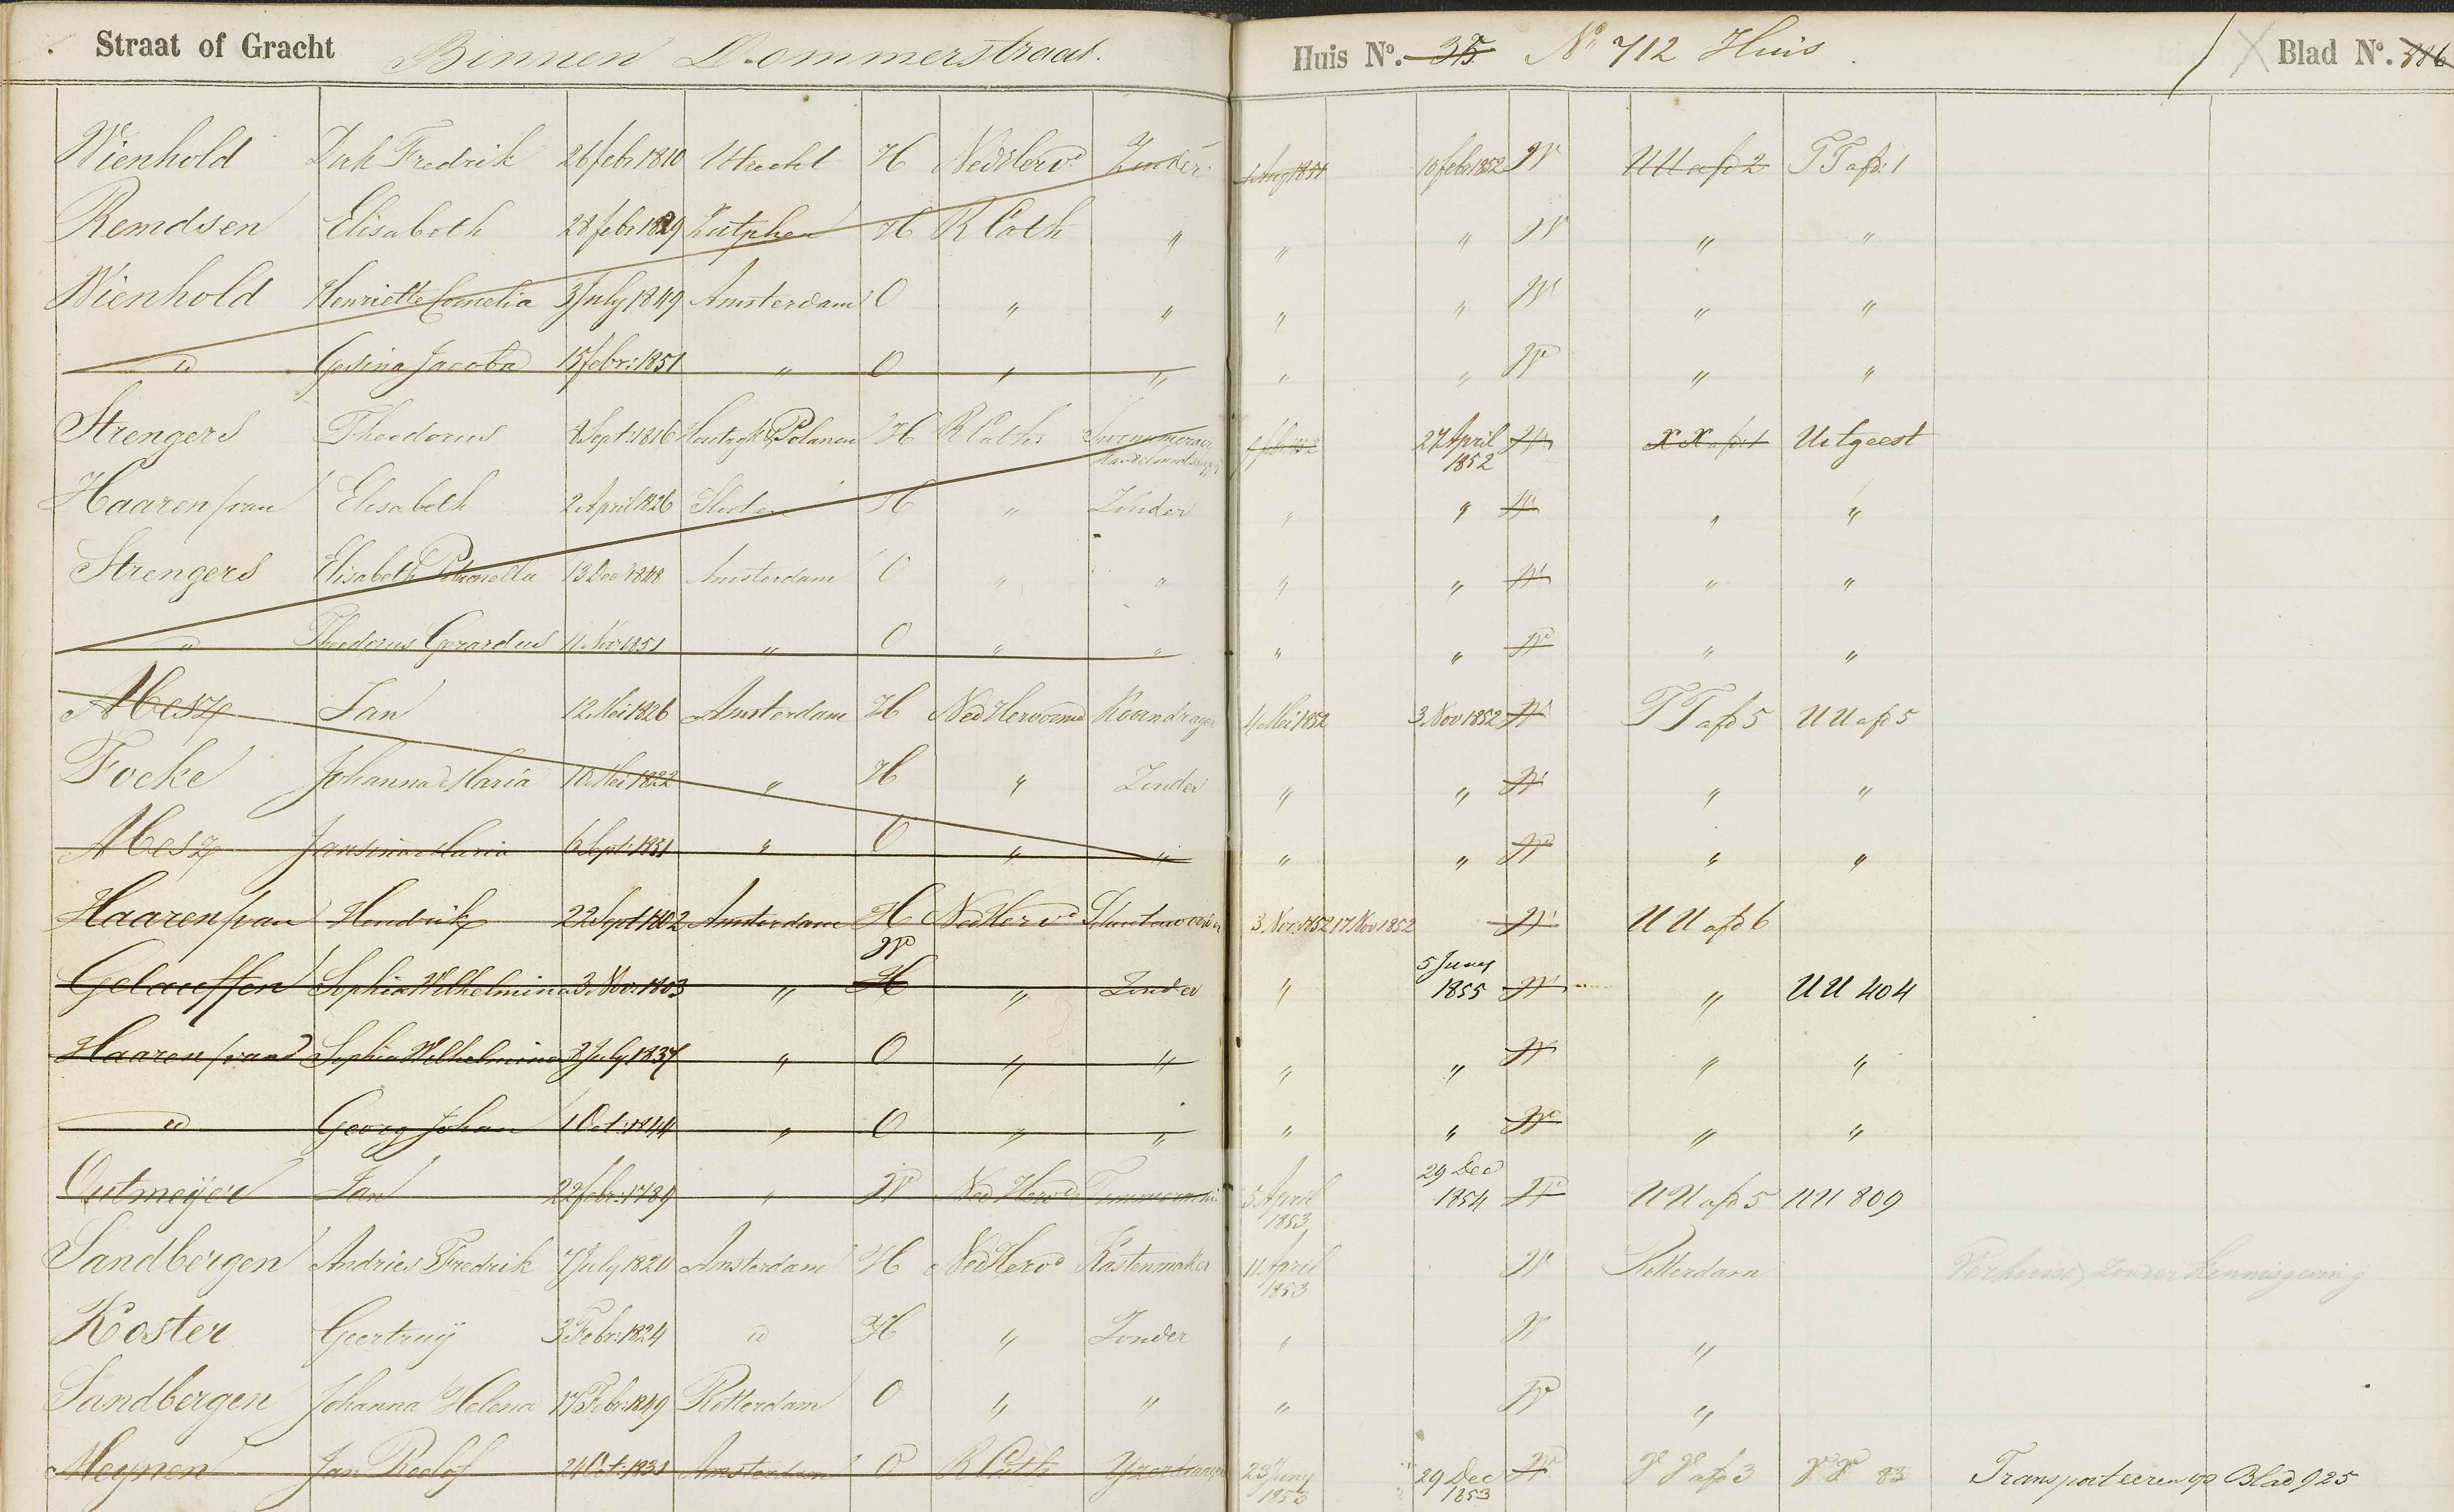 Straat of Gracht Binnen Dommerstraat. Huis No. 35 No 712 Huis Blad No. 886
Wienhold Dirk Fredrik 26 febr 1810 Utrecht H Ned Hervd Zonder 1 Aug 1851 10 feb 1852 W UU afd 2 TT afd: 1
Remdsen Elisabeth 28 febr 1829 Zutphen H R Cath " " " W " "
Wienhold Henriette Cornelia 3 July 1849 Amsterdam O " " " " W " "
id Gesina Jacoba 15 febr: 1851 " O " " " " W " "
Strengers Theodorus 8 Sept: 1816 Houtryk & Polanen H R Cath: 27 April 1852 W XX afd 1 Uitgeest
Haaren /van Elisabeth 2 April 1826 Sloten H " Zonder " " W " "
Strengers Elisabeth Petronella 13 Dec 1848 Amsterdam O " " " " W " "
" Theodorus Gerardus 11 Nov 1851 " O " " " " W " "
Mesz Jan 12 Mei 1826 Amsterdam H Ned Hervormd Koorndrager 4 Mei 1852 3 Nov 1852 W TT afd 5 UU afd 5
Focke Johanna Maria 10 Mei 1822 " H " Zonder " " W " "
Mesz Jansina Maria 6 Sept 1851 " O " " " " W " "
Haaren /van Hendrik 22 Sept 1802 Amsterdam H Ned Hervd 3 Nov: 1852 17 Nov 1852 W UU afd 6
W
Gelauffen Sophia Wilhelmina 3 Nov: 1803 " H " Zonder " 5 Juny 1855 W " UU 404
Haaren /van Sophia Wilhelmina 8 July 1837 " O " " " " W " "
id Georg Johan 1 Oct: 1844 " O " " " " W " "
Outmeijer Jan 22 febr: 1789 " W Ned Hervd Timmerman 5 April 1853 29 Dec 1854 W UU afd 5 UU 809
Sandbergen Andries Fredrik 7 July 1820 Amsterdam H Ned Hervd Kastenmaker 11 April 1853 W Rotterdam Verhuisd zonder kennisgeving
Koster Geertruij 3 Febr: 1824 id H " Zonder " W "
Sandbergen Johanna Helena 17 Febr: 1849 Rotterdam O " " " W "
Meynen Jan Roelof 24 Oct: 1831 Amsterdam O R Cath 23 Juny 1853 29 Dec 1853 W VV afd 3 VV 83 Transporteeren op Blad 925